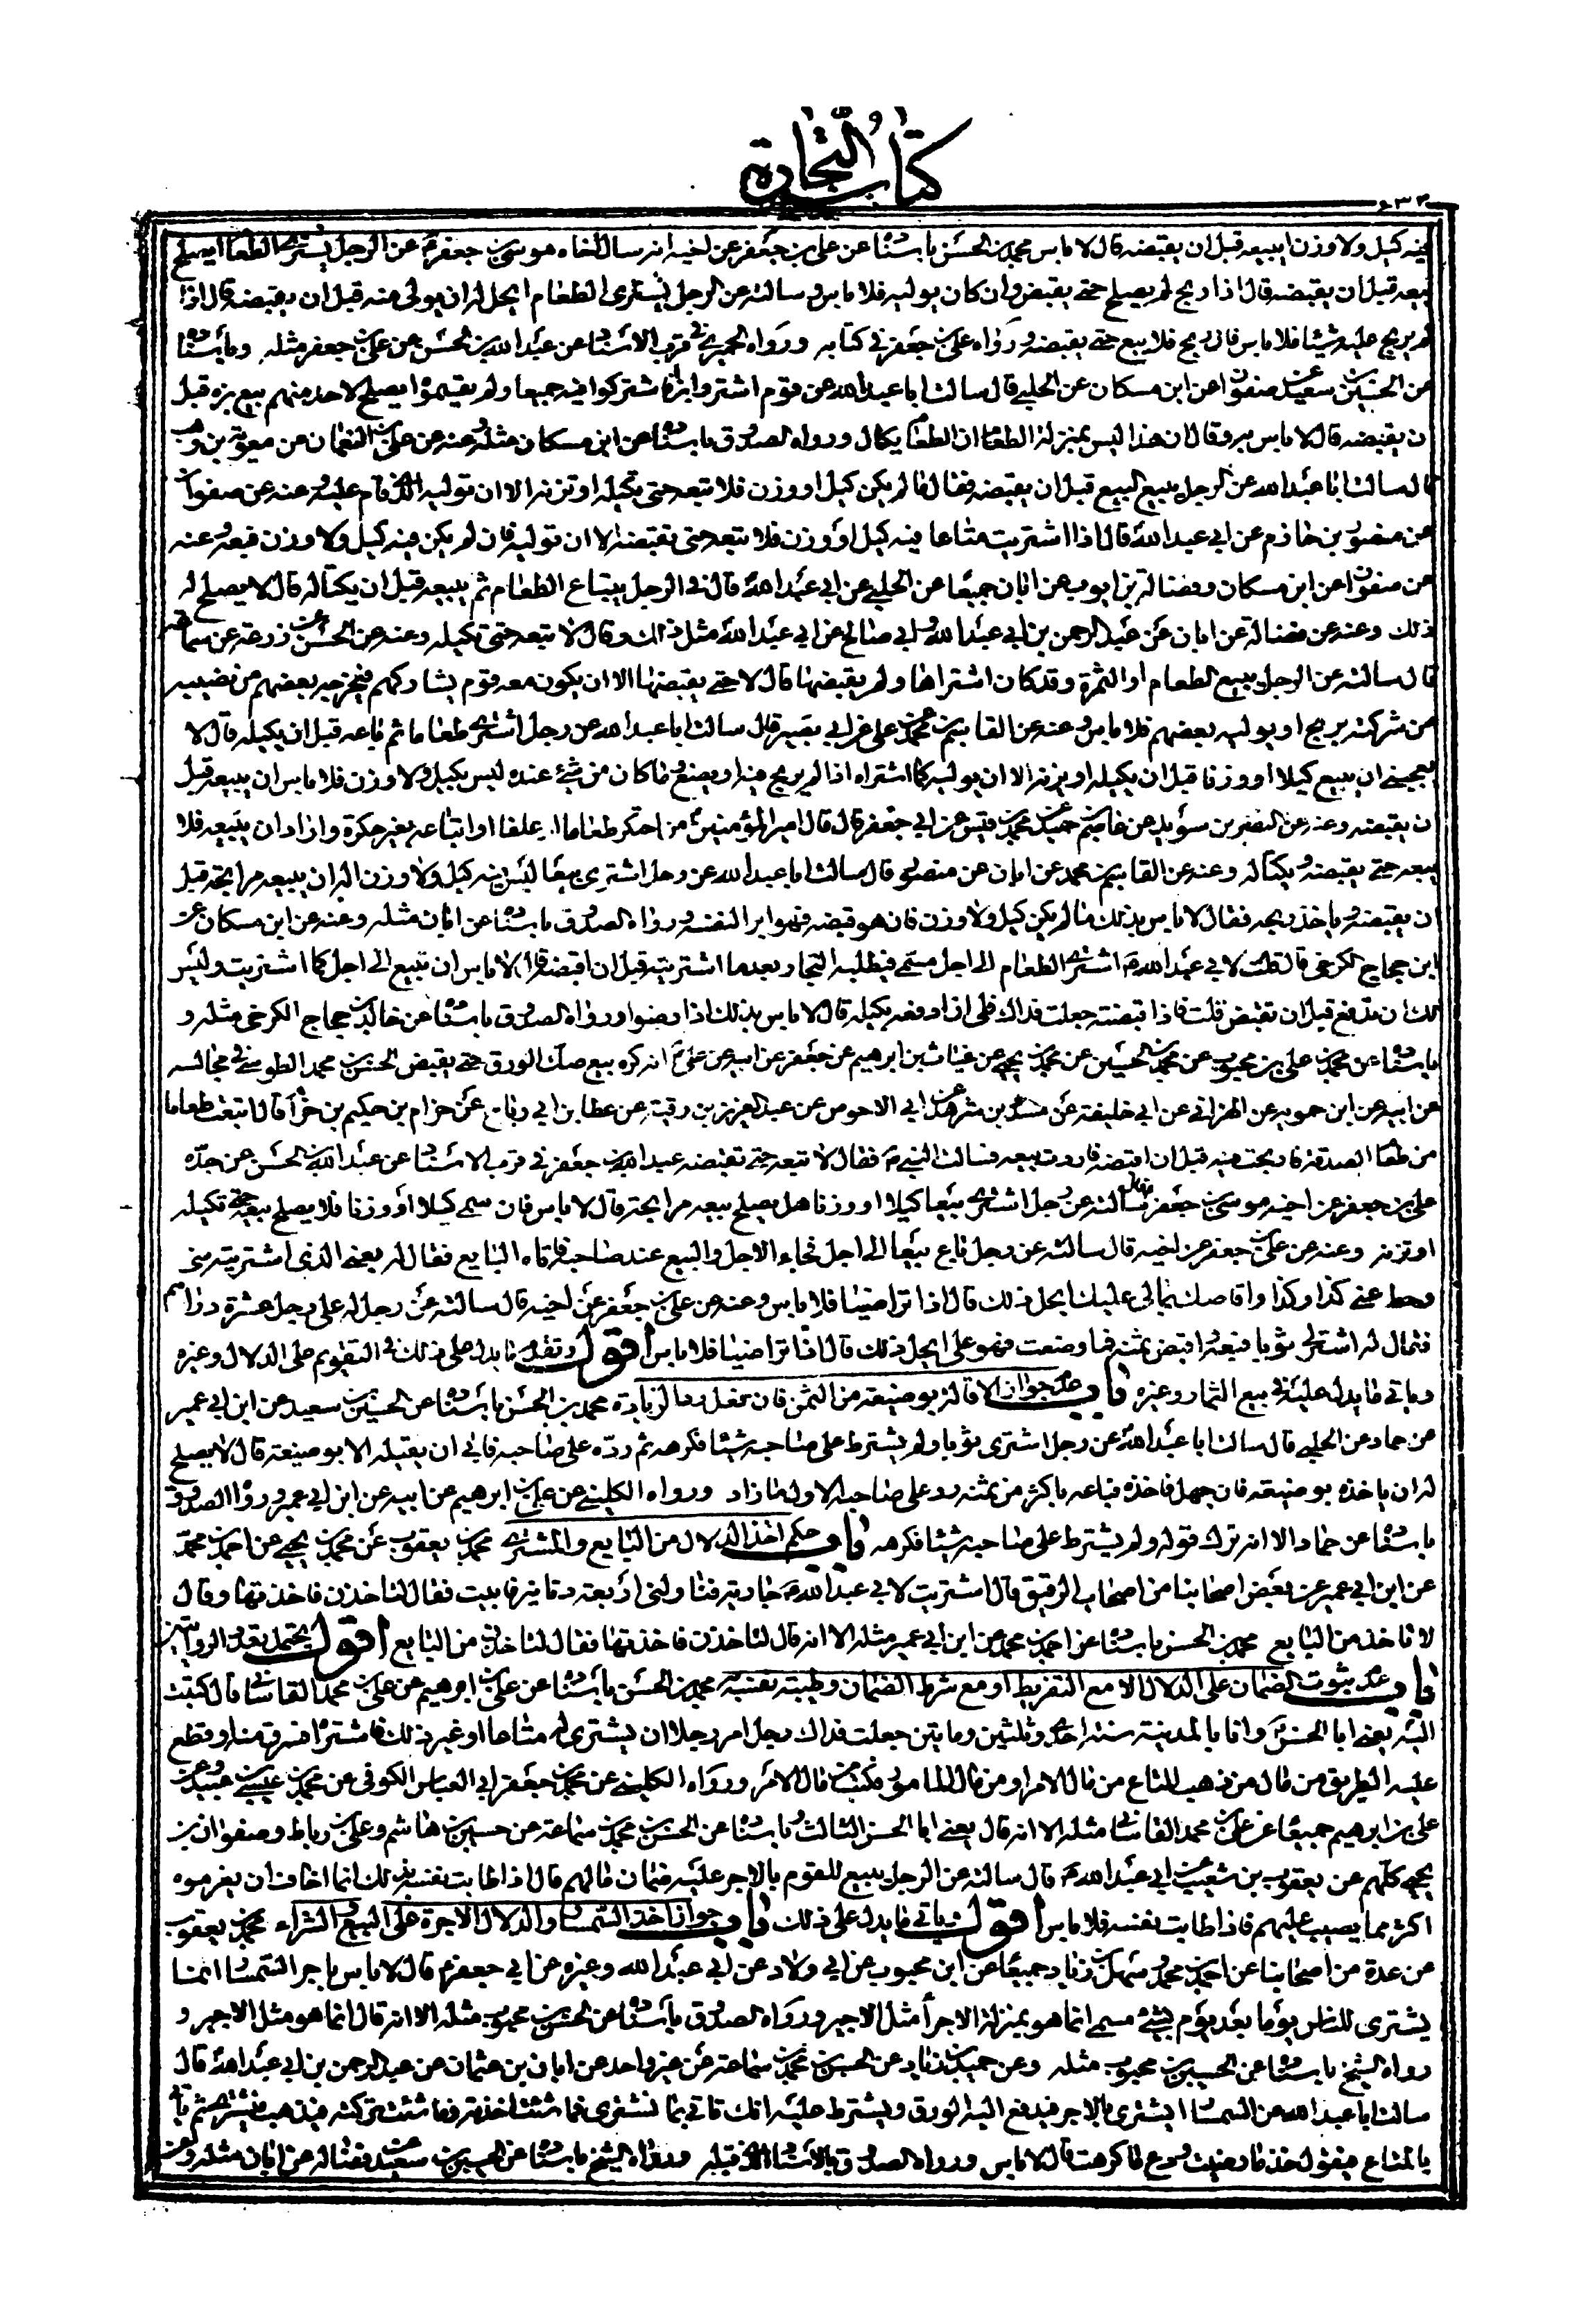 كتاب التجارة
فيه كيل ولا وزن ايبيعه قبل ان يقبضه قال لا باس محمد بن الحسن باسناده عن علي بن جعفر عن اخيه انه سال اخاه موسى بن جعفر ع عن الرجل يشترى الطعام ايصلح
بيعه قبل ان يقبضه قال اذا ربح لم يصلح حتى يقبض وان كان يوليه فلا باس وسالته عن الرجل يشترى الطعام ايحل له ان يولى منه قبل ان يقبضه قال اذا
لم يربح عليه شيئا فلا باس فان ربح فلا يبع حتى يقبضه ورواه علي بن جعفر في كتابه ورواه الحميري في قرب الاسناد عن عبد الله بن الحسن عن علي بن جعفر مثله وباسناده
عن الحسين بن سعيد عن صفوان عن ابن مسكان عن الحلبي قال سالت ابا عبد الله عن قوم اشتروا بزا فاشتركوا فيه جميعا ولم يقيموا ايصلح لاحد منهم بيع بزه قبل
ان يقبضه قال لا باس به وقال ان هذا ليس بمنزلة الطعام ان الطعام يكال ورواه الصدوق باسناده عن ابن مسكان مثله وعنه عن علي بن النعمان عن معوية بن وهب
قال سالت ابا عبد الله عن الرجل يبيع البيع قبل ان يقبضه فقال ما لم يكن كيل او وزن فلا تبعه حتى تكيله او تزنه الا ان توليه الذي قام عليه وعنه عن صفوان
عن منصور بن حازم عن ابي عبد الله قال اذا اشتريت متاعا فيه كيل او وزن فلا تبعه حتى تقبضه الا ان توليه فان لم يكن فيه كيل ولا وزن فبعه وعنه
عن صفوان عن ابن مسكان وفضالة بن ايوب عن ابان جميعا عن الحلبي عن ابي عبد الله قال في الرجل يبتاع الطعام ثم يبيعه قبل ان يكتاله قال لا يصلح له
ذلك وعنه عن فضالة عن ابان عن عبد الرحمن بن ابي عبد الله وابي صالح عن ابي عبد الله مثل ذلك وقال لا تبعه حتى تكيله وعنه عن الحسن عن زرعة عن سماعة
قال سالته عن الرجل يبيع الطعام او الثمرة وقد كان اشتراها ولم يقبضها قال لا حتى يقبضها الا ان يكون معه قوم يشاركهم فيخرجه بعضهم من نصيبه
من شركته بربح او يوليه بعضهم فلا باس وعنه عن القاسم بن محمد عن علي عن ابي بصير قال سالت ابا عبد الله عن رجل اشترى طعاما ثم باعه قبل ان يكيله قال لا
يعجبني ان يبيع كيلا او وزنا قبل ان يكيله او يزنه الا ان يوليه كما اشتراه اذا لم يربح فيه او يضع وما كان من شئ عنده ليس بكيل ولا وزن فلا باس ان يبيعه قبل
ان يقبضه وعنه عن النضر بن سويد عن عاصم بن حميد عن محمد بن قيس عن ابي جعفر قال قال امير المؤمنين من احتكر طعاما او علفا او ابتاعه بغير حكرة واراد ان يبيعه فلا
يبعه حتى يقبضه ويكتاله وعنه عن القاسم بن محمد عن ابان عن منصور قال سالت ابا عبد الله عن رجل اشترى بيعا ليس فيه كيل ولا وزن اله ان يبيعه مرابحة قبل
ان يقبضه وياخذ ربحه فقال لا باس بذلك ما لم يكن كيل ولا وزن فان هو قبضه فهو ابرأ لنفسه ورواه الصدوق باسناده عن ابان مثله وعنه عن ابن مسكان عن
ابن حجاج الكرخي قال قلت لابي عبد الله ع اشترى الطعام الى اجل مسمى فيطلبه التجار بعد ما اشتريته قبل ان اقبضه قال لا باس ان تبيع الى اجل كما اشتريت وليس
لك ان تدفع قبل ان تقبض قلت فاذا قبضته جعلت فداك فلي ان ادفعه بكيله قال لا باس بذلك اذا رضوا ورواه الصدوق باسناده عن خالد بن حجاج الكرخي مثله و
باسناده عن محمد بن علي بن محبوب عن محمد بن الحسين عن محمد بن يحيى عن غياث بن ابرهيم عن جعفر عن ابيه عن علي ع انه كره بيع صك الورق حتى يقبض الحسن بن محمد الطوسي في مجالسه
عن ابيه عن ابن حمويه عن الهزاني عن ابي خليفة عن مسدد بن مسرهد عن ابي الاحوص عن عبد العزيز بن رقيع عن عطا بن ابي رباح عن حزام بن حكيم بن حزام قال ابتعت طعاما
من طعام الصدقة فاربحت فيه قبل ان اقبضه فاردت بيعه فسالت النبي ص فقال لا تبعه حتى تقبضه عبد الله بن جعفر في قرب الاسناد عن عبد الله بن الحسن عن جده
علي بن جعفر عن اخيه موسى بن جعفر قال سالته عن رجل اشترى بيعا كيلا او وزنا هل يصلح بيعه مرابحة قال لا باس فان سمى كيلا او وزنا فلا يصلح بيعه حتى تكيله
او تزنه وعنه عن علي بن جعفر عن اخيه قال سالته عن رجل باع بيعا الى اجل فجاء الاجل والبيع عند صاحبه فاتاه البايع فقال له بعني الذي اشتريته مني
وحط عني كذا وكذا واقاصك بمالي عليك ايحل ذلك قال اذا تراضيا فلا باس وعنه عن علي بن جعفر عن اخيه قال سالته عن رجل له على رجل عشرة دراهم
فقال له اشتر لي ثوبا فبعه واقبض ثمنه فما وضعت فهو علي ايحل ذلك قال اذا تراضيا فلا باس اقول وتقدم ما يدل على ذلك في التقويم على الدلال وغيره
وياتي ما يدل عليه في بيع الثمار وغيره باب عدم جواز الاقالة بوضيعة من الثمن فان فعل رد الزيادة محمد بن الحسن باسناده عن الحسين بن سعيد عن ابن ابي عمير
عن حماد عن الحلبي قال سالت ابا عبد الله عن رجل اشترى ثوبا ولم يشترط على صاحبه شيئا فكرهه ثم رده على صاحبه فابى ان يقيله الا بوضيعة قال لا يصلح
له ان ياخذه بوضيعة فان جهل فاخذه فباعه باكثر من ثمنه رد على صاحبه الاول ما زاد ورواه الكليني عن علي بن ابرهيم عن ابيه عن ابن ابي عمير ورواه الصدوق
باسناده عن حماد الا انه ترك قوله ولم يشترط على صاحبه شيئا فكرهه باب حكم اخذ الدلال من البايع والمشتري محمد بن يعقوب عن محمد بن يحيى عن احمد بن محمد
عن ابن ابي عمير عن بعض اصحابنا من اصحاب الرقيق قال اشتريت لابي عبد الله ع جارية فناولني اربعة دنانير فابيت فقال لتاخذن فاخذتها وقال
لا تاخذ من البايع محمد بن الحسن باسناده عن احمد بن محمد عن ابن ابي عمير مثله الا انه قال لتاخذن فاخذتها فقال لا تاخذ من البايع اقول يحتمل تعدد الروايتين
باب عدم ثبوت الضمان على الدلال الا مع التفريط او مع شرط الضمان وطيبة نفسه محمد بن الحسن باسناده عن علي بن ابرهيم عن علي بن محمد القاساني قال كتبت
اليه يعني ابا الحسن وانا بالمدينة سنة احدى وثلثين ومايتين جعلت فداك رجل امر رجلا ان يشترى له متاعا او غير ذلك فاشتراه فسرق منه او قطع
عليه الطريق من مال من ذهب المتاع من مال الامر او من مال المامور فكتب من مال الامر ورواه الكليني عن محمد بن جعفر ابي العباس الكوفي عن محمد بن عيسى بن عبيد وعن
علي بن ابرهيم جميعا عن علي بن محمد القاساني مثله الا انه قال يعني ابا الحسن الثالث وباسناده عن الحسن بن محمد بن سماعة عن حسين بن هاشم وعلي بن رباط وصفوان بن
يحيى كلهم عن يعقوب بن شعيب عن ابي عبد الله ع قال سالته عن الرجل يبيع للقوم بالاجر عليه ضمان مالهم قال اذا طابت نفسه بذلك انما اخاف ان يغرموه
اكثر مما يصيب عليهم فاذا طابت نفسه فلا باس اقول وياتي ما يدل على ذلك باب جواز اخذ السمسار والدلال الاجرة على البيع والشراء محمد بن يعقوب
عن عدة من اصحابنا عن احمد بن محمد وسهل بن زياد جميعا عن ابن محبوب عن ابي ولاد عن ابي عبد الله وغيره عن ابي جعفر ع قال لا باس باجر السمسار انما
يشترى للناس يوما بعد يوم بشئ مسمى انما هو بمنزلة الاجراء مثل الاجير ورواه الصدوق باسناده عن الحسن بن محبوب مثله الا انه قال انما هو مثل الاجير و
رواه الشيخ باسناده عن الحسين بن محبوب مثله وعن حميد بن زياد عن الحسن بن محمد بن سماعة عن غير واحد عن ابان بن عثمان عن عبد الرحمن بن ابي عبد الله قال
سالت ابا عبد الله عن السمسار ايشترى بالاجر فيدفع اليه الورق ويشترط عليه انك تاتي بما تشترى فما شئت اخذته وما شئت تركته فيذهب فيشترى ثم ياتي
بالمتاع فيقول خذ ما رضيت ودع ما كرهت قال لا باس ورواه الصدوق بالاسناد الذي قبله ورواه الشيخ باسناده عن الحسين بن سعيد عن فضالة عن ابان مثله وعن